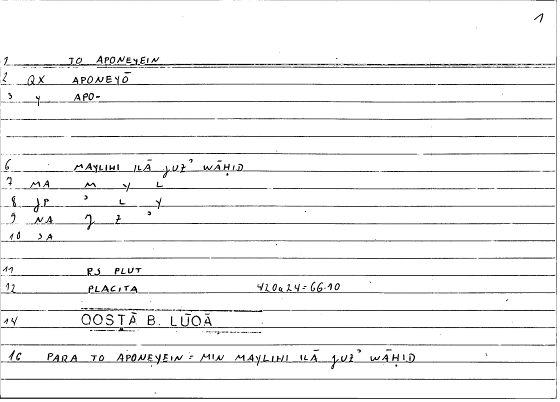 1
1 TO APONEYEIN
2 QX APONEYŌ
3 Y APO-
6 MAYLIHI ILĀ JUZʾ WĀḤID
7 MA M Y L
8 JP ʾ L Y
9 NA J Z ʾ
10 SA
11 RS PLUT
12 PLACITA 420a24=66.10
14 QOSTĀ B. LŪQĀ
16 PARA TO APONEYEIN = MIN MAYLIHI ILĀ JUZʾ WĀḤID